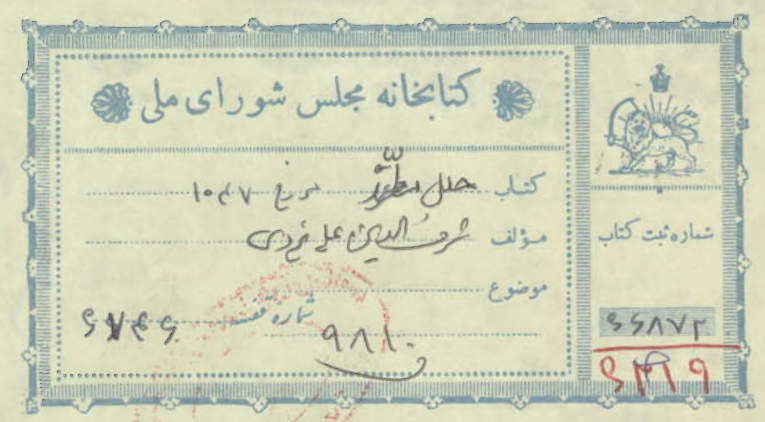 کتابخانه مجلس شورای ملی
کتاب حلل مطرز مورخ ۱۰۴۷
مؤلف شرف الدین علی یزدی
موضوع
شماره قفسه
۹۸۱۰
شماره ثبت کتاب
۶۶۸۷۲